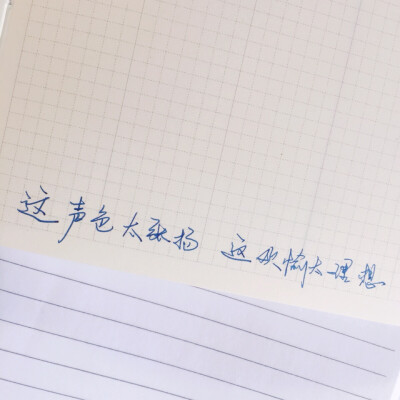 这声色太张扬 这欢愉太理想